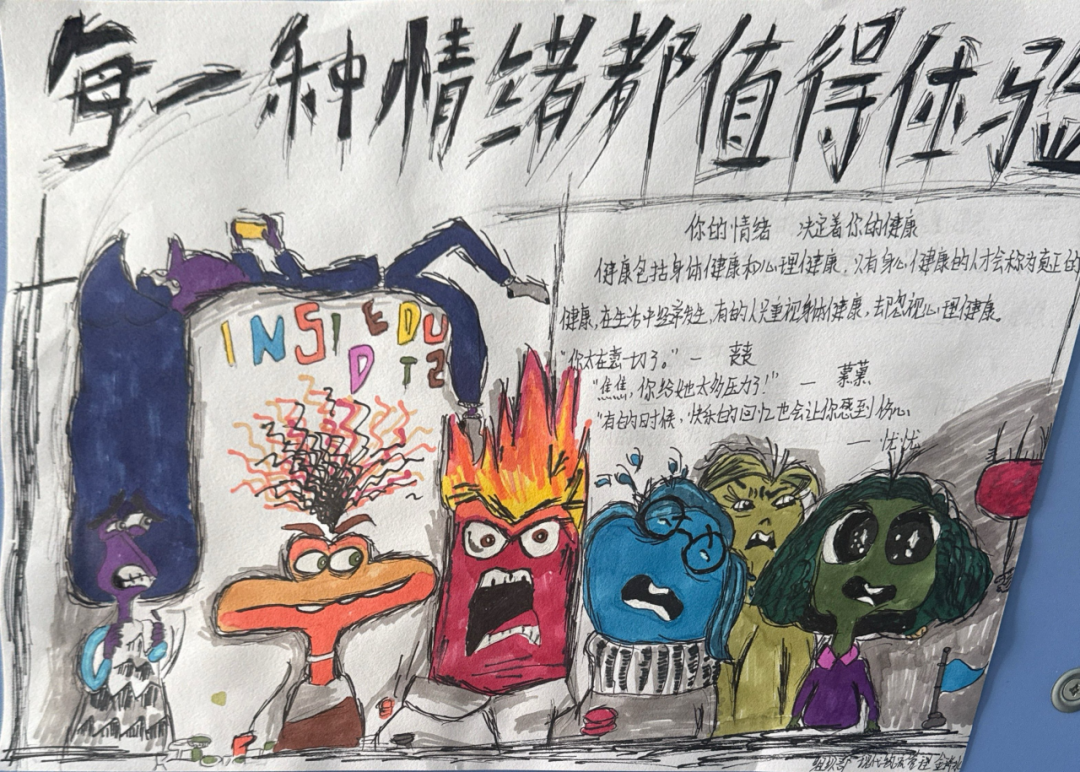 每一种情绪都值得体验
你的情绪 决定着你的健康
健康包括身体健康和心理健康，只有身心健康的人才会称为真正的
健康，在生活中经常发生，有的人只重视身体健康，却忽视心理健康。
"你太在意一切了。" — 丧丧
"焦焦，你给她太多压力了！" — 慕慕
"有的时候，快乐的回忆也会让你感到伤心
— 忧忧
INSIEDU
D TZ
现代物流管理